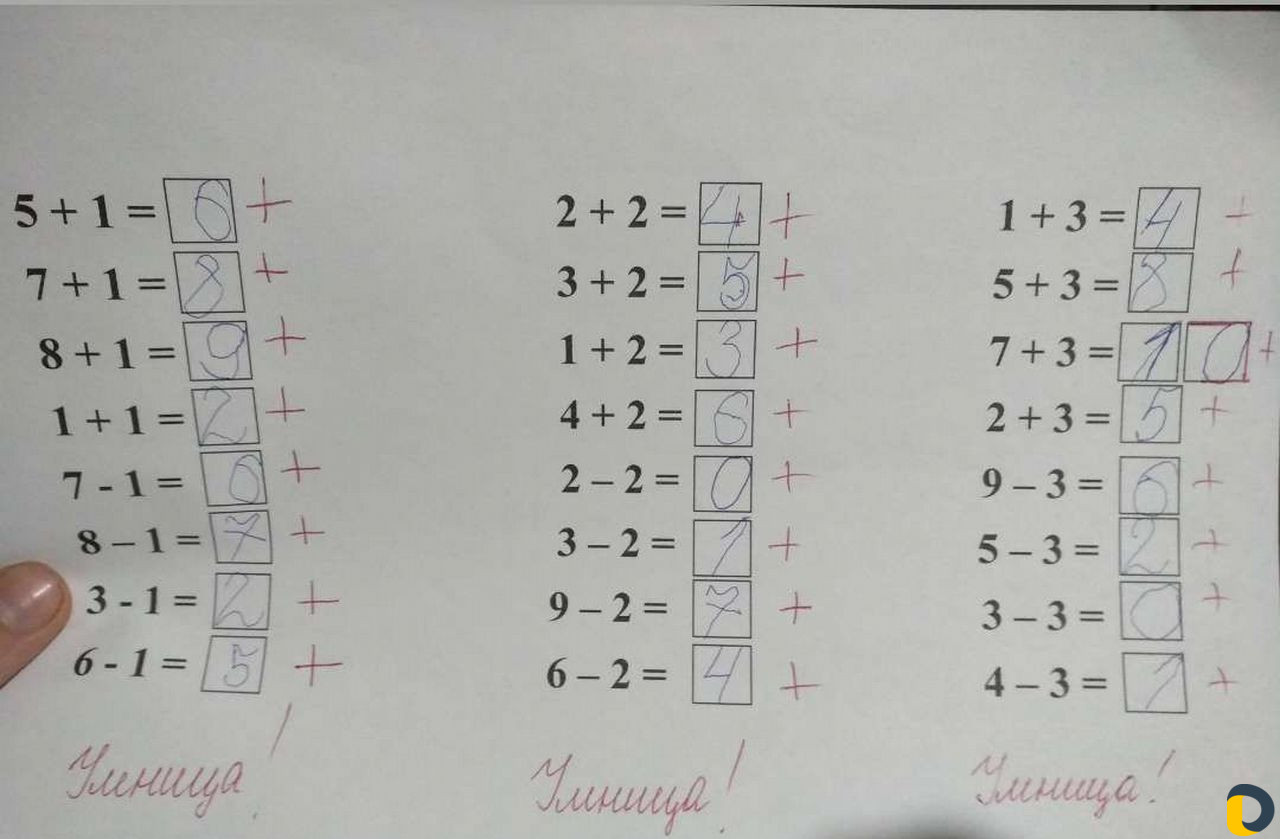 5 + 1 = 6 +
7 + 1 = 8 +
8 + 1 = 9 +
1 + 1 = 2 +
7 - 1 = 6 +
8 – 1 = 7 +
3 - 1 = 2 +
6 - 1 = 5 +
Умница!
2 + 2 = 4 +
3 + 2 = 5 +
1 + 2 = 3 +
4 + 2 = 6 +
2 – 2 = 0 +
3 – 2 = 1 +
9 – 2 = 7 +
6 – 2 = 4 +
Умница!
1 + 3 = 4 +
5 + 3 = 8 +
7 + 3 = 10 +
2 + 3 = 5 +
9 – 3 = 6 +
5 – 3 = 2 +
3 – 3 = 0 +
4 – 3 = 1 +
Умница!